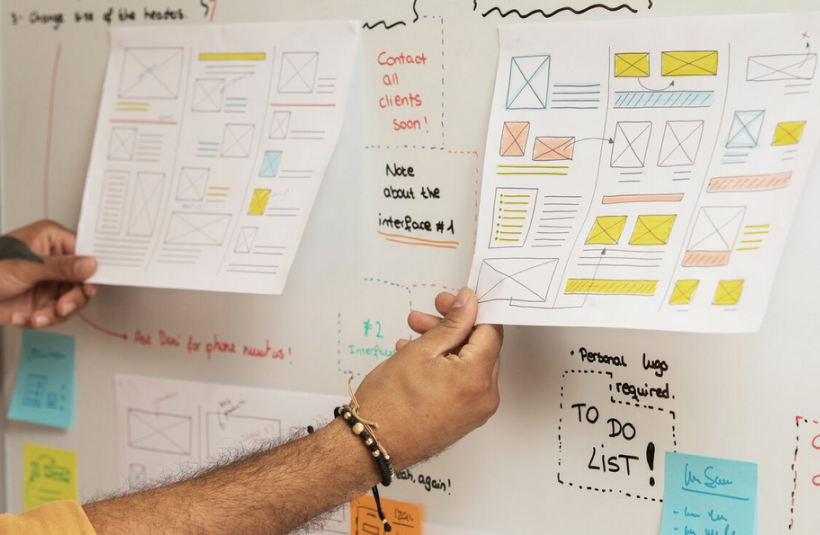 Change size of the headers.
Contact
all
clients
soon!
Note
about the
interface #1
#2
Interface
Ask Dani for phone
• Personal logo
required.
TO DO
LIST!
again!